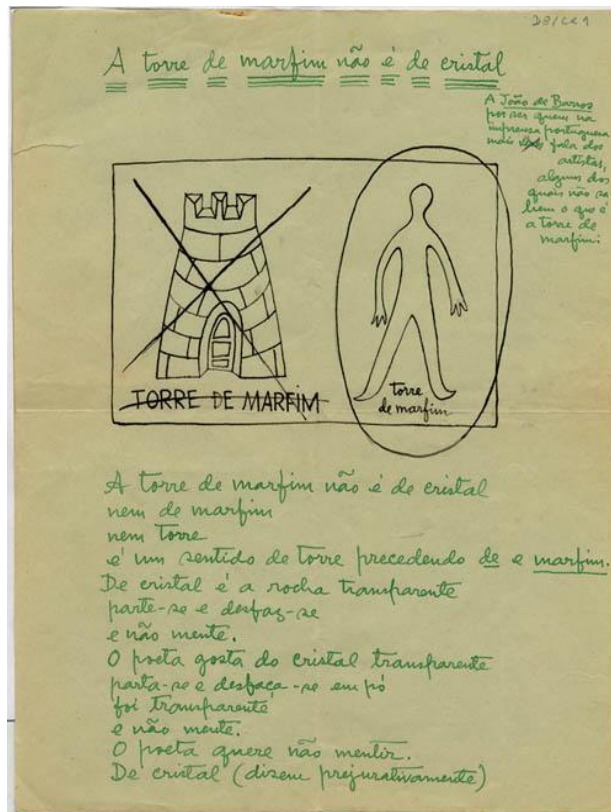 A torre de marfim não é de cristal
A João de Barros
por ser quem na
imprensa portuguesa
mais fala dos
artistas,
alguns dos
quais não sa
bem o que é
a torre de
marfim:
TORRE DE MARFIM
torre
de marfim
A torre de marfim não é de cristal
nem de marfim
nem torre
é um sentido de torre precedendo de e marfim.
De cristal é a rocha transparente
parte-se e desfaz-se
e não mente.
O poeta gosta do cristal transparente
parta-se e desfaça-se em pó
foi transparente
e não mente.
O poeta quere não mentir.
De cristal (dizem prejurativamente)